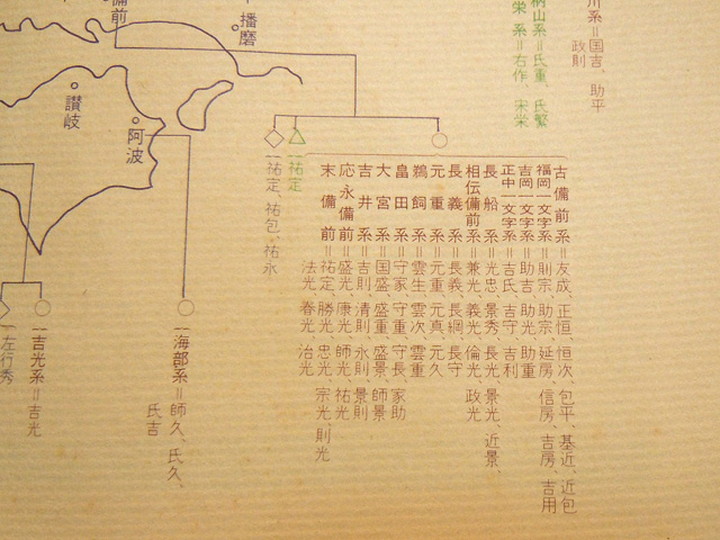 川系＝国吉、助平
政則
柄山系＝氏重、氏繁
栄系＝右作、宗栄
播磨
備前
讃岐
阿波
古備前系＝友成、正恒、恒次、包平、基近、近包
福岡一文字系＝則宗、助宗、延房、信房、吉房、吉用
吉岡一文字系＝助吉、助光、助重
正中一文字系＝吉氏、吉守、吉利
長船系＝光忠、景秀、長光、景光、近景、
相伝備前系＝兼光、義光、倫光、政光
長義系＝長義、長綱、長守
元重系＝元重、元真、元久
鵜飼系＝雲生、雲次、雲重
畠田系＝守家、守重、守長、家助
大宮系＝国盛、盛重、盛景、師景
吉井系＝吉則、清則、永則、景則
応永備前＝盛光、康光、師光、祐光
末備前＝祐定、勝光、忠光、宗光、則光
法光、春光、治光
祐定
祐定、祐包、祐永
海部系＝師久、氏久、
氏吉
吉光系＝吉光
左行秀